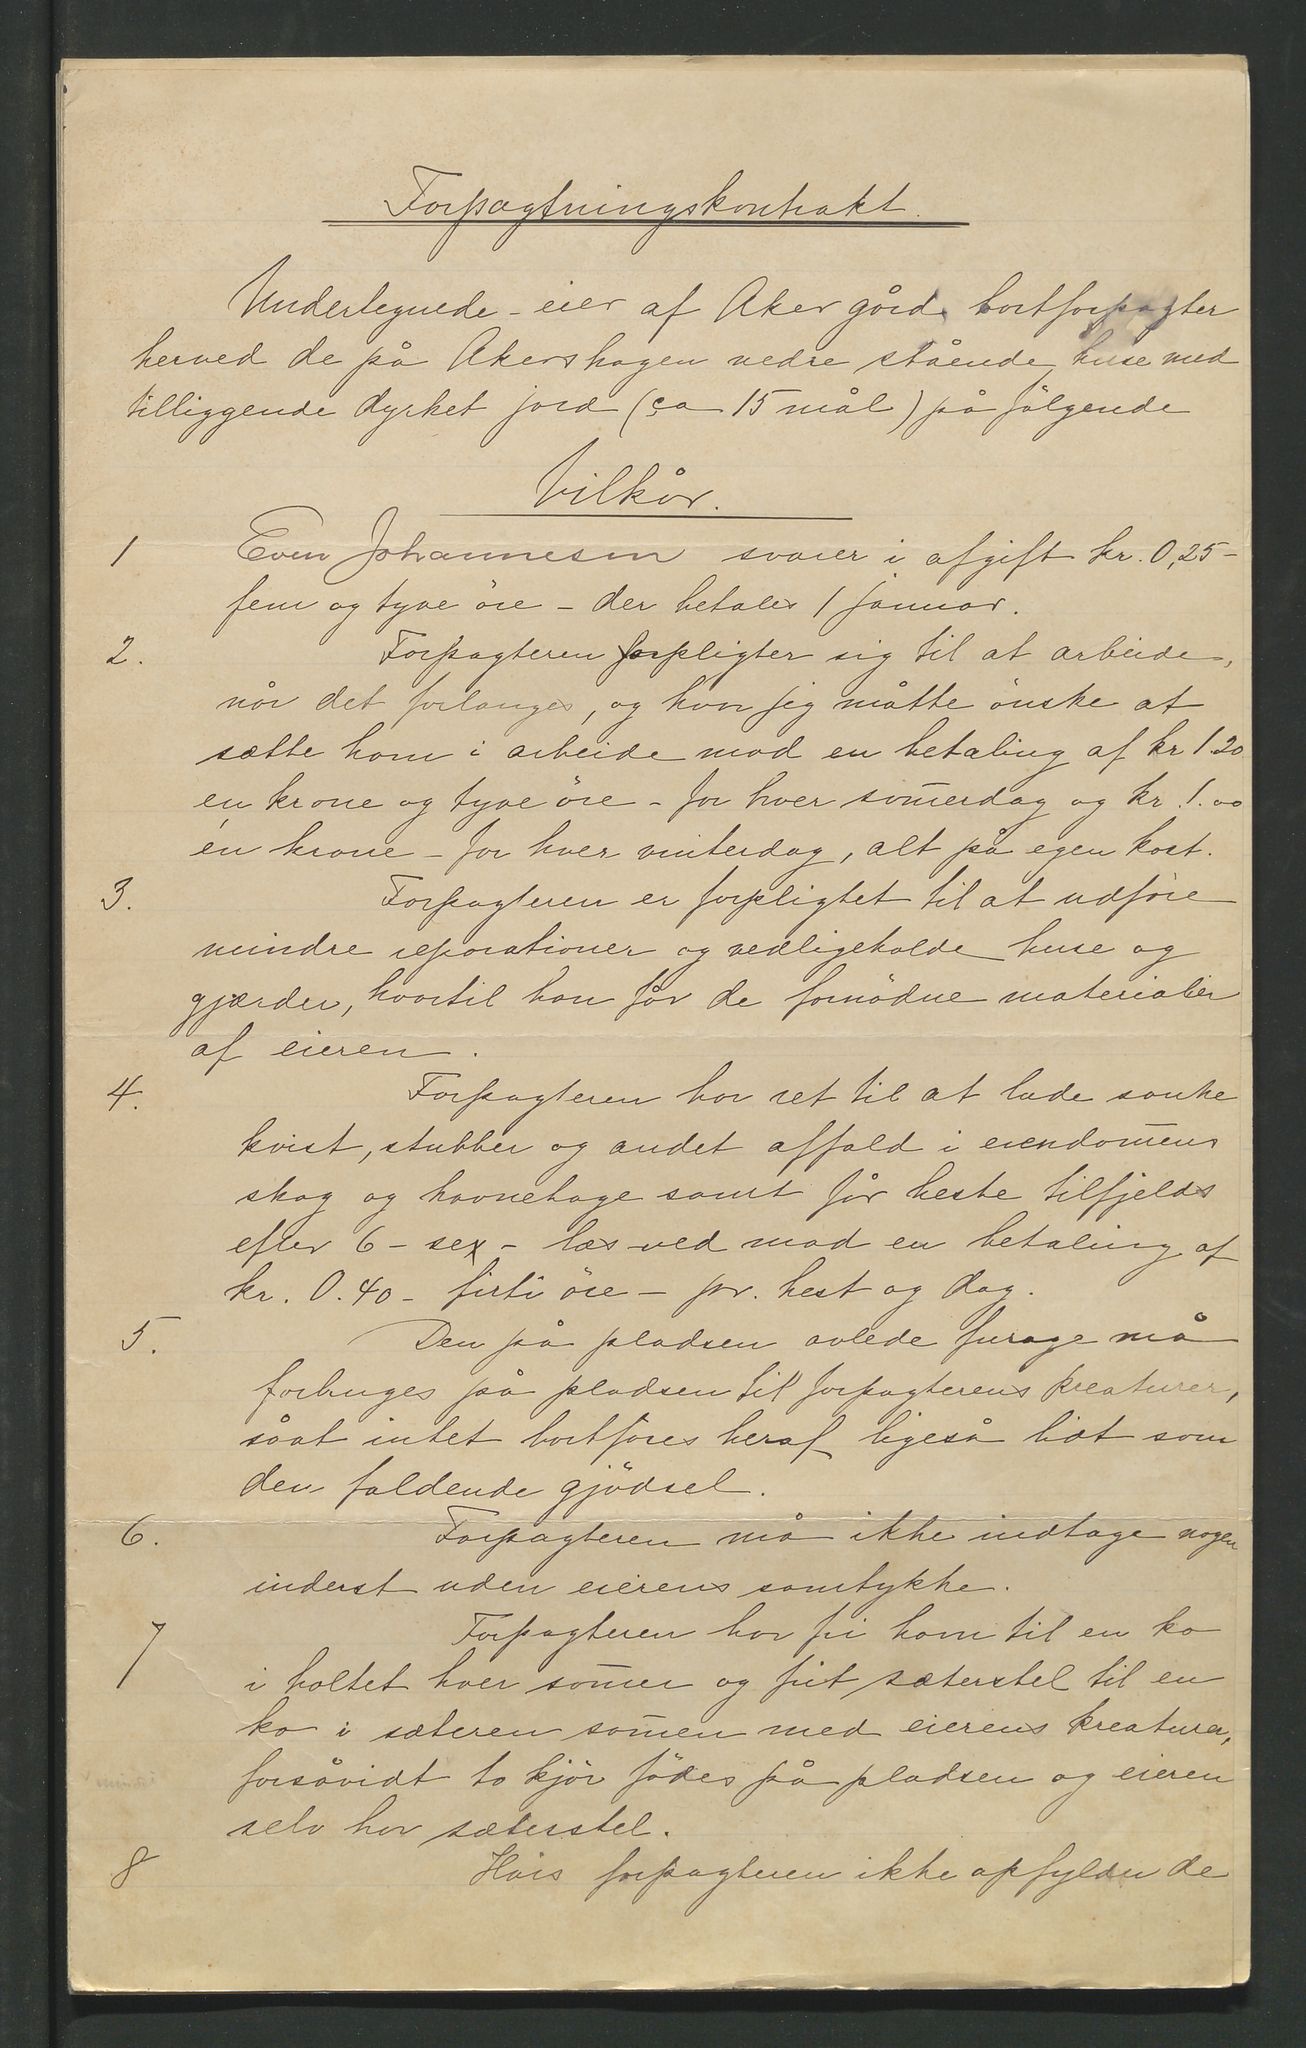 Forpagtningskontrakt.
Undertegnede - eier af Aker gård bortforpagter
herved de på Akershagen nedre stående huse med
tilliggende dyrket jord (ca 15 mål) på følgende
Vilkår.
1 Even Johannesen svarer i afgift kr. 0,25 -
fem og tyve öre - der betales 1 januar.
2. Forpagteren forpligter sig til at arbeide,
når det forlanges, og hvor jeg måtte önske at
sætte ham i arbeide mod en betaling af kr 1.20
en krone og tyve öre - for hver som̄erdag og kr. 1.00
én krone - for hver vinterdag, alt på egen kost.
3. Forpagteren er forpligtet til at udföre
mindre reparationer og vedligeholde huse og
gjærder, hvortil han får de fornödne materialier
af eieren.
4. Forpagteren har ret til at lade sanke
kvist, stubber og andet affald i eiendom̄ens
skog og havnehage samt får heste tilfjelds
efter 6 - sex - læs ved mod en betaling af
kr. 0.40 - firti öre - pr. hest og dag.
5. Den på pladsen avlede furage må
forbruges på pladsen til forpagterens kreaturer,
såat intet bortföres heraf ligeså lidt som
den faldende gjödsel.
6. Forpagteren må ikke indtage nogen
inderst uden eierens samtykke.
7 Forpagteren har fri havn til en ko
i holtet hver som̄er og frit sæterstel til en
ko i sæteren som̄en med eierens kreaturer,
forsåvidt to kjör födes på pladsen og eieren
selv har sæterstel.
8 Hvis forpagteren ikke opfylder de